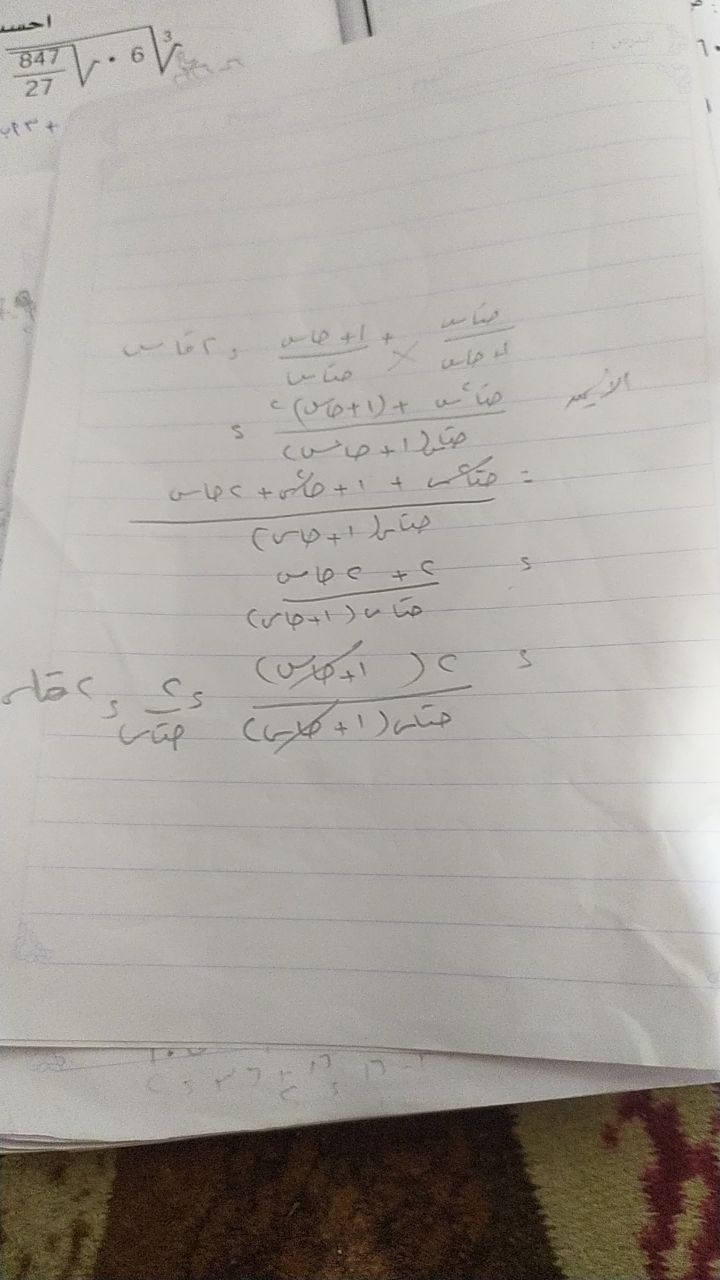 احسب
∛6 · √(847/27)
جتاس/(1+جاس) + (1+جاس)/جتاس = ٢قاس
الأيمن
(جتا²س + (1+جاس)²)/(جتاس(1+جاس)) =
= (جتا²س + 1 + جا²س + ٢جاس)/(جتاس(1+جاس))
= (٢ + ٢جاس)/(جتاس(1+جاس))
= ٢(1+جاس)/(جتاس(1+جاس)) = ٢/جتاس = ٢قاس